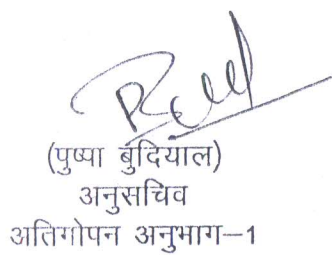 (पुष्पा बुंदियाल)
अनुसचिव
अतिगोपन अनुभाग–1